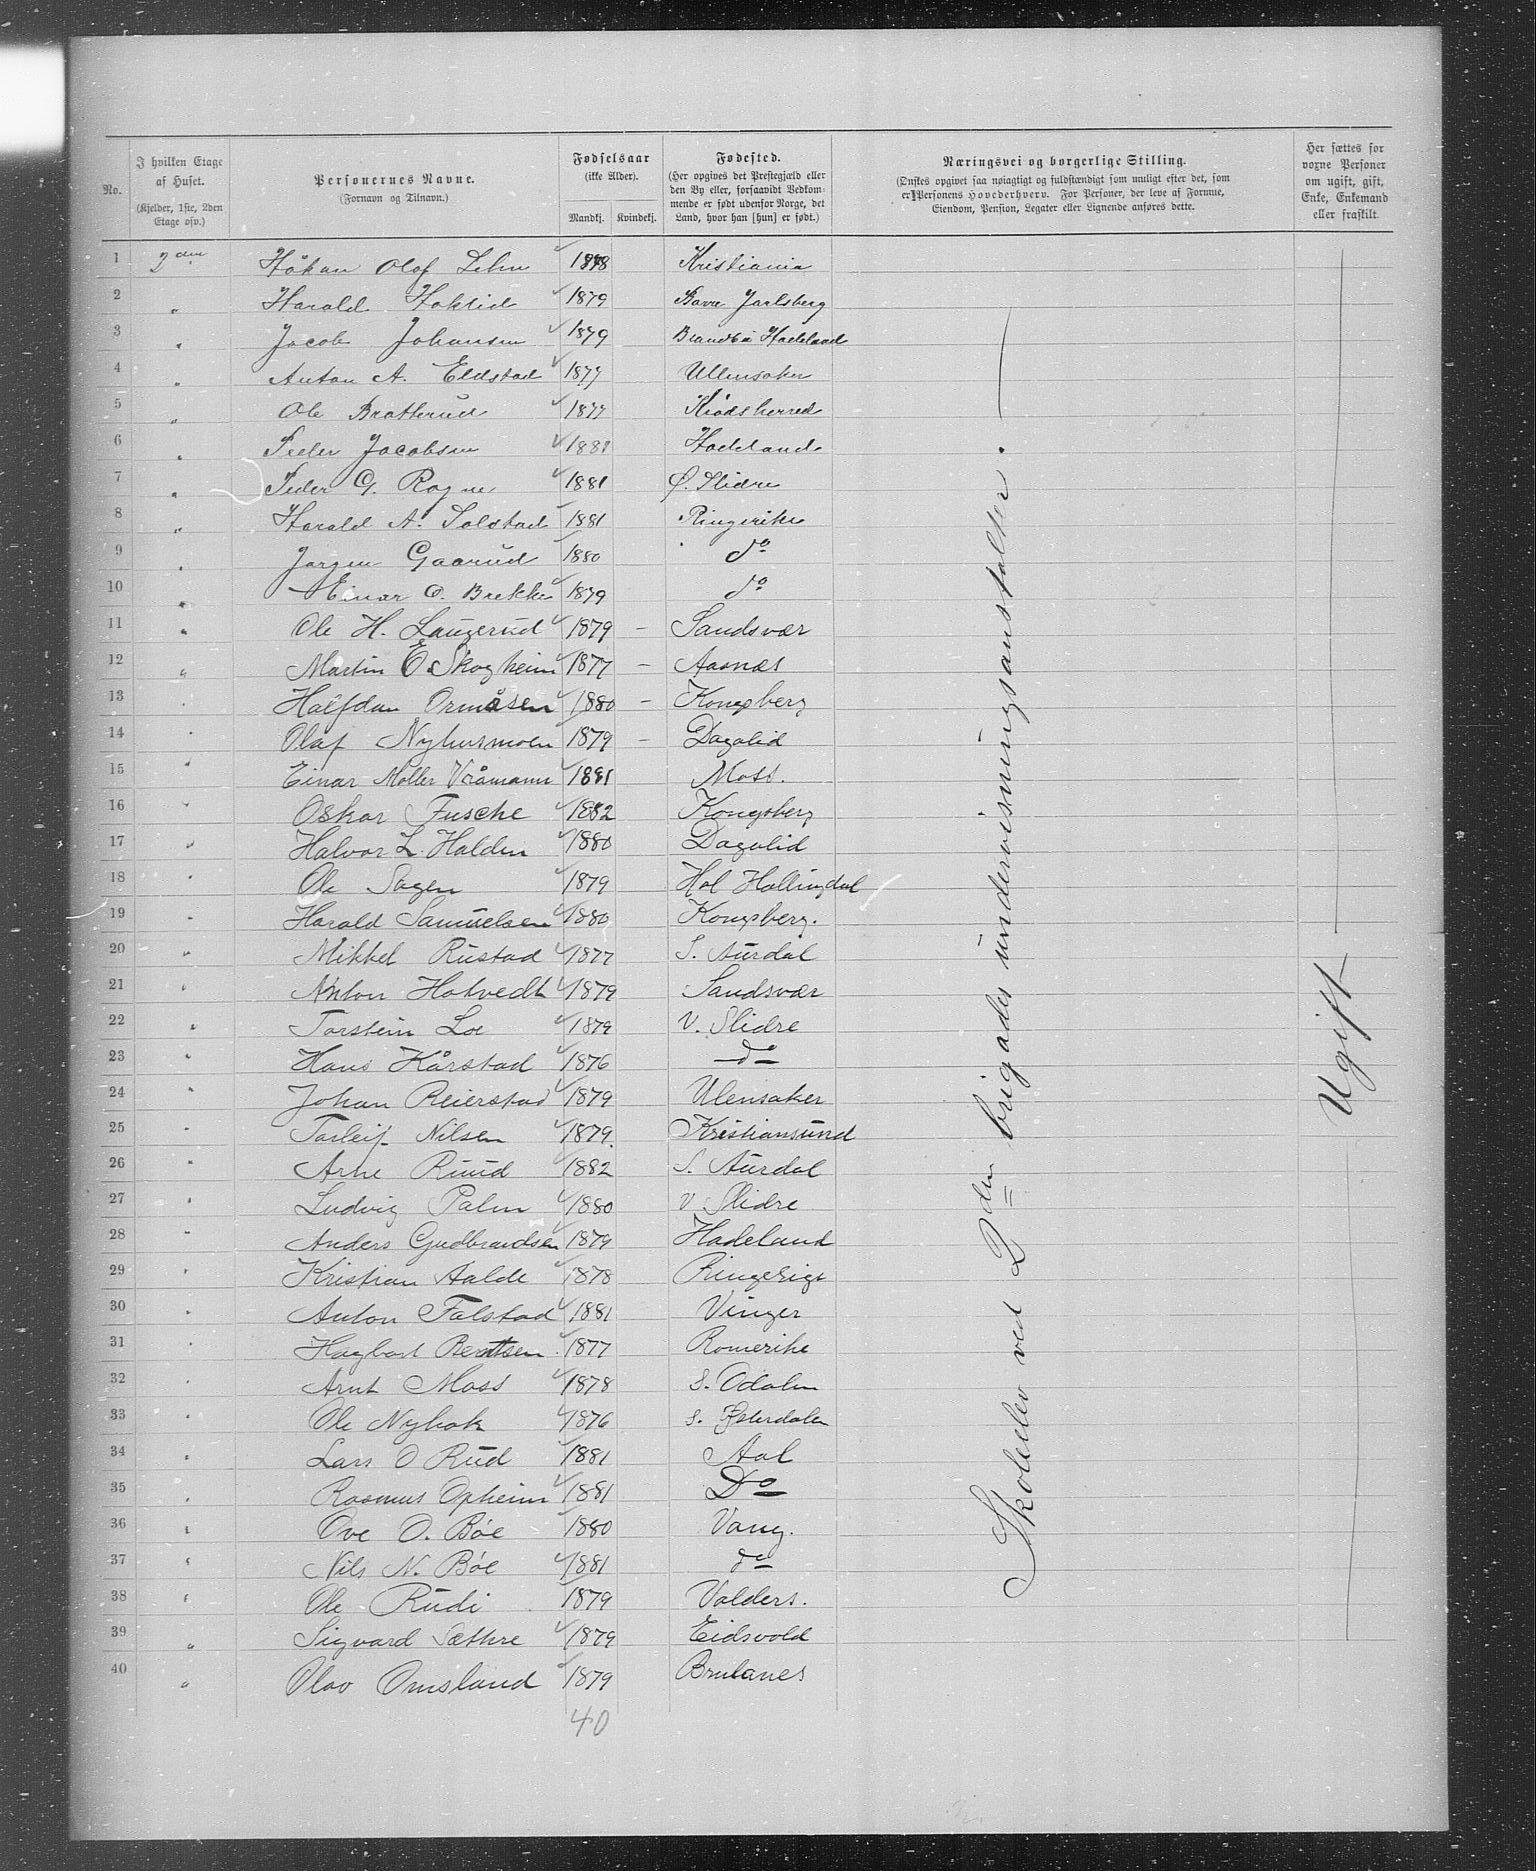 No.
I hvilken Etage af Huset. (Kjelder, 1ste, 2den Etage osv.)
Personernes Navne. (Fornavn og Tilnavn.)
Fødselsaar (ikke Alder). Mandkj. Kvindekj.
Fødested. (Her opgives det Prestegjæld eller den By eller, forsaavidt Vedkommende er født udenfor Norge, det Land, hvor han [hun] er født.)
Næringsvei og borgerlige Stilling. (Ønskes opgivet saa nøiagtigt og fuldstændigt som muligt efter det, som er Personens Hovederhverv. For Personer, der leve af Formue, Eiendom, Pension, Legater eller Lignende anføres dette.
Her sættes for voxne Personer om ugift, gift, Enke, Enkemand eller fraskilt.
1 2den Håkan Olaf Lehn 1878 Kristiania
2 " Harald Hoktid 1879 Jarlsberg
3 " Jacob Johansen 1879 Brandbu Hadeland
4 " Anton A. Eldstad 1877 Ullensaker
5 " Ole Bratterud 1877 Krødsherred
6 " Peder Jacobsen 1881 Hadeland
7 " Peder G. Rogne 1881 Ø. Slidre
8 " Harald A. Solstad 1881 Ringerike
9 " Jørgen Gaarud 1880 do
10 " Einar O. Brekke 1879 do
11 " Ole H. Laugerud 1879 – Sandsvær
12 " Martin E. Skogheim 1877 – Aasnæs
13 " Halfdan Ormåsen 1880 – Kongsberg
14 " Olaf Nyhusmoen 1879 – Dagalid
15 " Einar Møller Vråmann 1881 Moss.
16 " Oskar Fusche 1882 Kongsberg
17 " Halvor L. Halden 1880 Dagalid
18 " Ole Sagen 1879 Hol Hallingdal
19 " Harald Samuelsen 1880 Kongsberg.
20 " Mikkel Rustad 1877 S. Aurdal
21 " Anton Hotvedt 1879 Sandsvær
22 " Torstein Loe 1879 V. Slidre
23 " Hans Kårstad 1876 do
24 " Johan Reierstad 1879 Ulensaker
25 " Torleif Nilsen 1879. Kristiansund
26 " Arne Ruud 1882 S. Aurdal
27 " Ludvig Palm 1880 V Slidre
28 " Anders Gudbrandsen 1879 Hadeland
29 " Kristian Aalde 1878 Ringerige
30 " Anton Falstad 1881 Vinger
31 " Hagbart Berntsen 1877 Romerike
32 " Arnt Moss 1878 S. Odalen
33 " Ole Nybak 1876 S. Østerdalen
34 " Lars O Rud 1881 Aal
35 " Rasmus Opheim 1881 Do
36 " Ove O. Bøe 1880 Vang.
37 " Nils N. Bøe 1881 do
38 " Ole Rudi 1879 Valders.
39 " Sigvard Sæthre 1879 Eidsvold
40 " Olav Omsland 1879
40
Skoleelev ved 2den brigades underviisningsanstalter.
Ugift